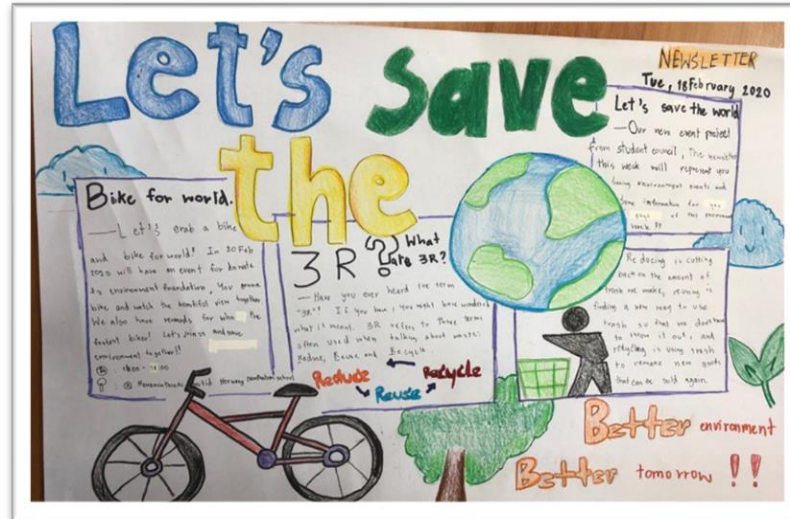 Let's save
the
NEWSLETTER
Tue, 18 February 2020
Let's save the world
—Our new event project
from student council, The newsletter
this week will represent you
environment events and
Some information for
of this
week !!
Bike for world.
—Let's grab a bike
and bike for world! In 20 Feb
2020 will have an event for donate
to environment foundation, You
bike and watch the beautiful view together
We also have rewards for who the
fastest biker! Let's join us and save
environment together!
3R
What
are 3R?
— Have you ever heard the term
"3R"? If you have, you might have wondered
what it meant. 3R refers to three terms
often used when talking about waste:
Reduce, Reuse and Recycle
Reduce
Reuse
Recycle
Reducing is cutting
back on the amount of
trash we make, reusing is
finding a new way to use
trash so that we don't have
to throw it out, and
recycling is using trash
to remake new goods
that can be sold again.
Better environment
Better tomorrow !!